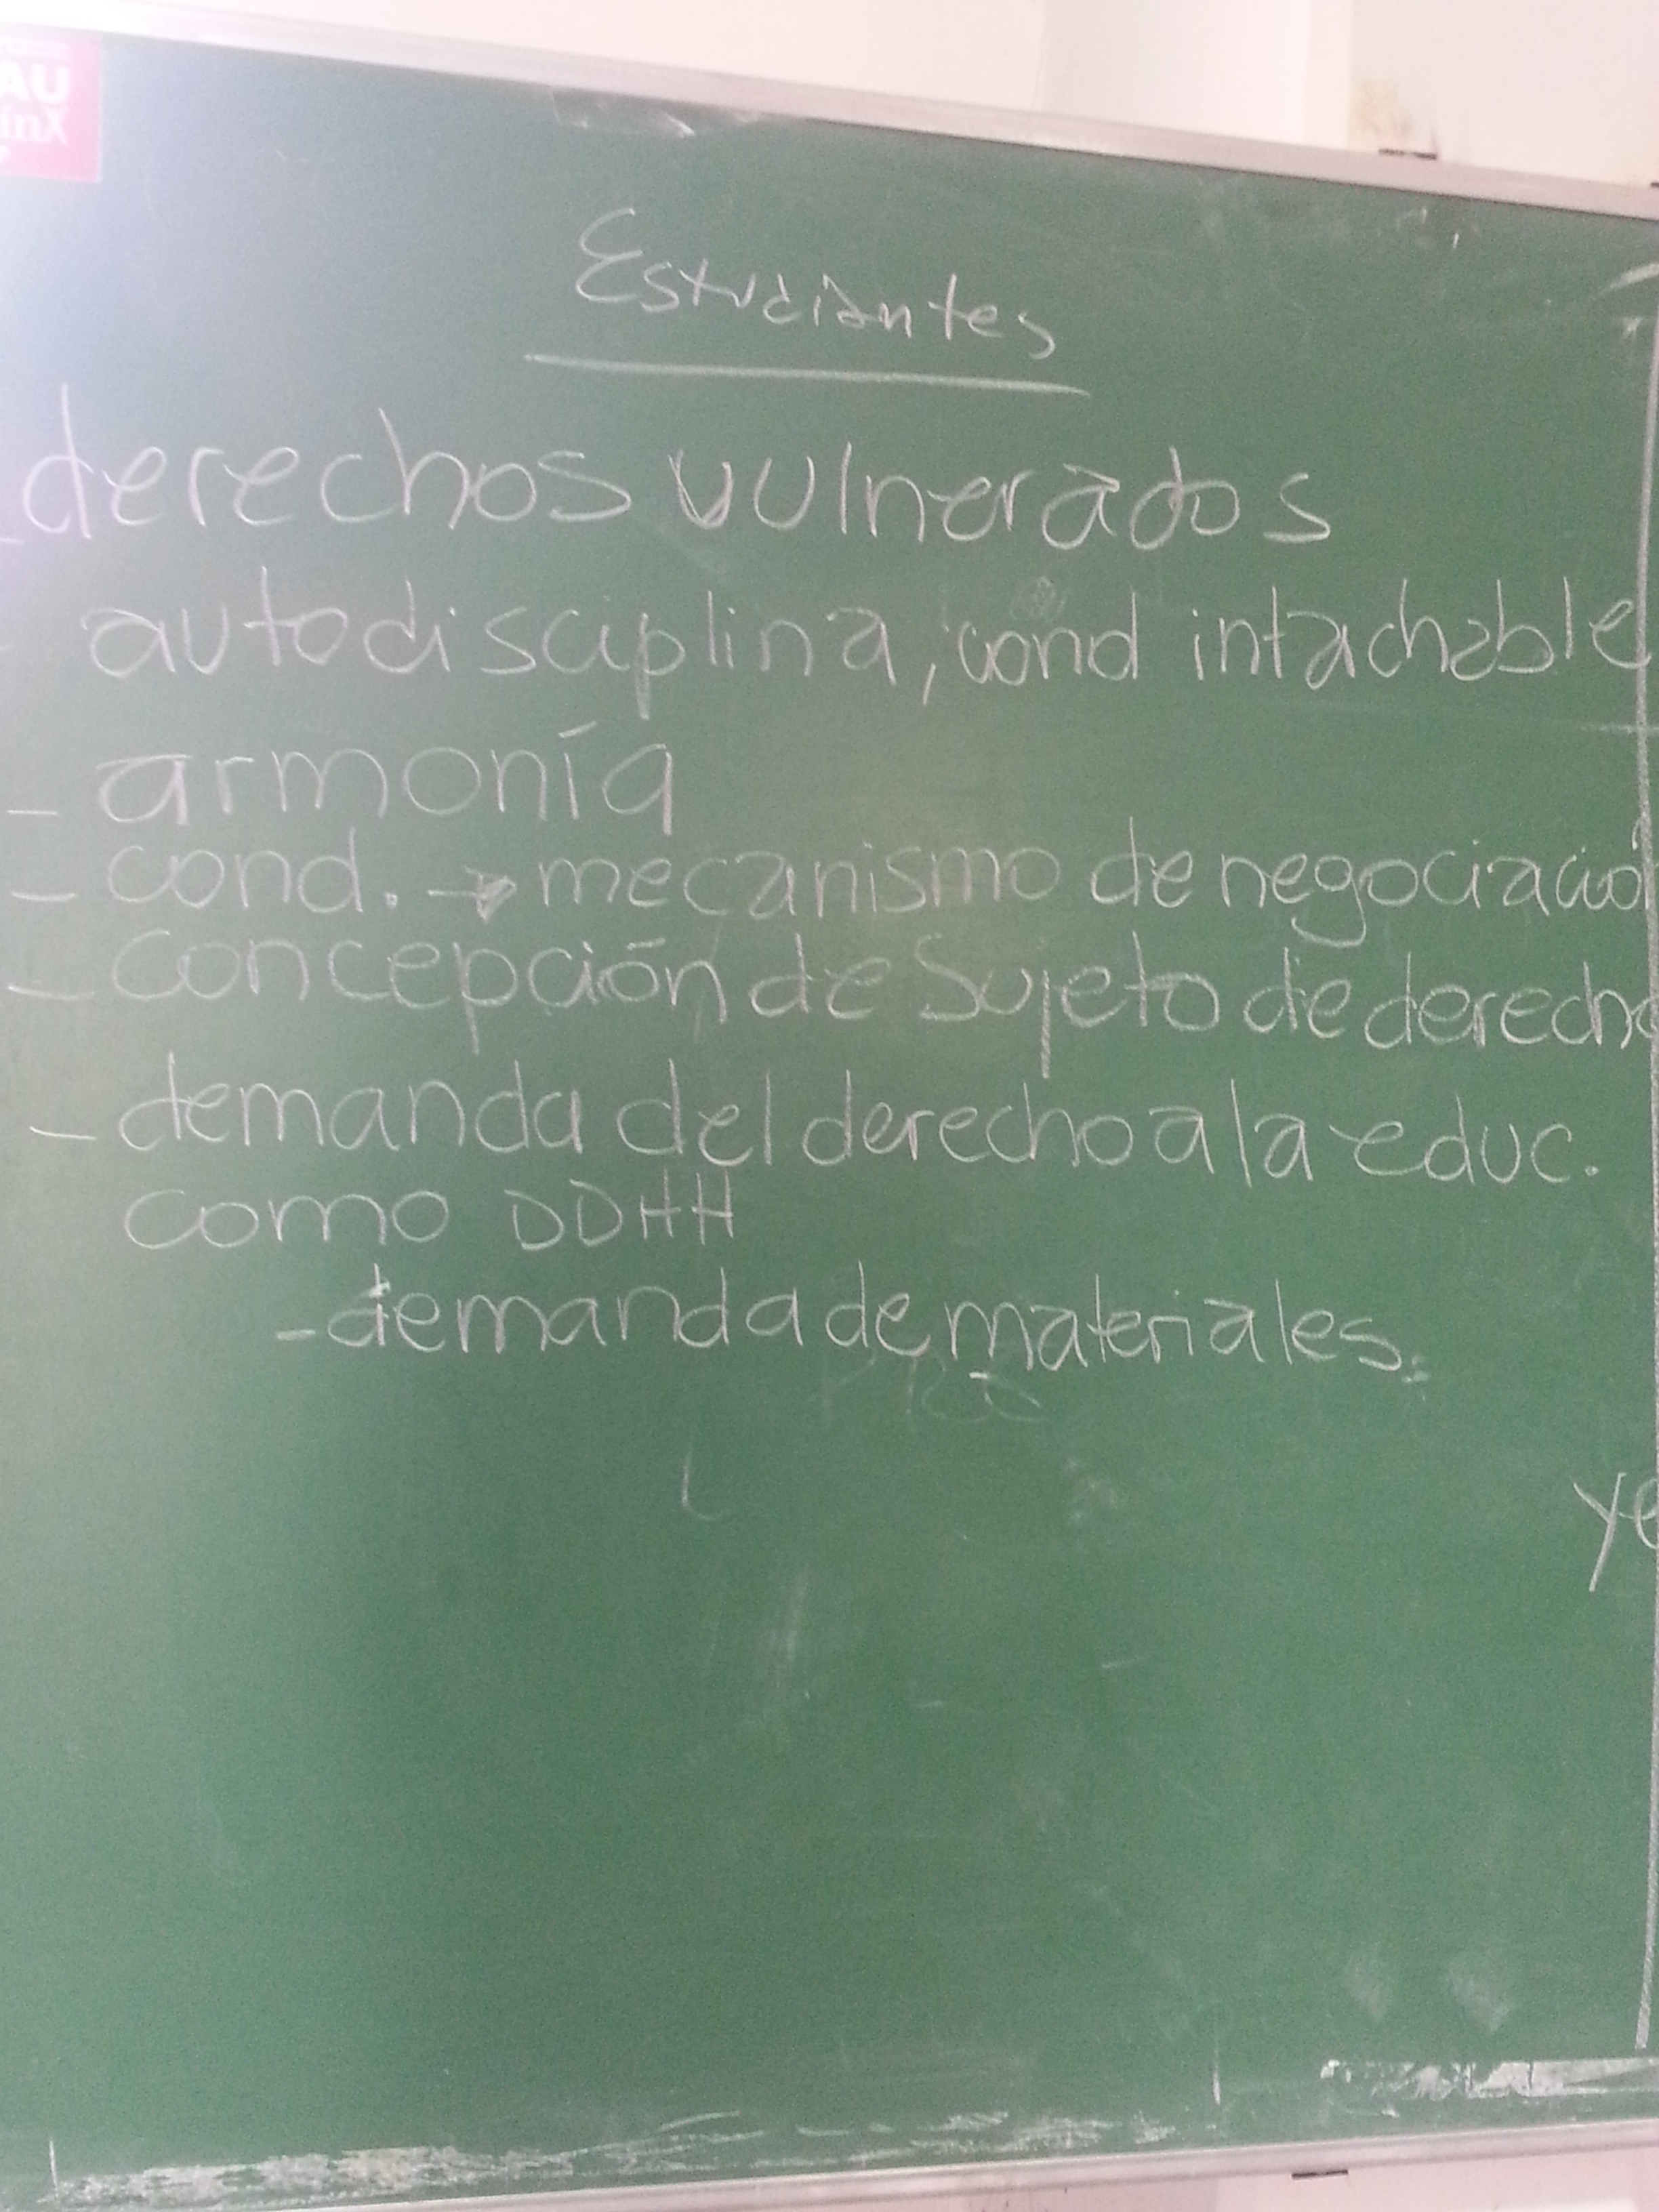 AU
inX
Estudiantes
- derechos vulnerados
- autodisciplina, cond intachable
- armonía
- cond. → mecanismo de negociación
- concepción de Sujeto de derecho
- demanda del derecho a la educ.
como DDHH
- demanda de materiales.
ye